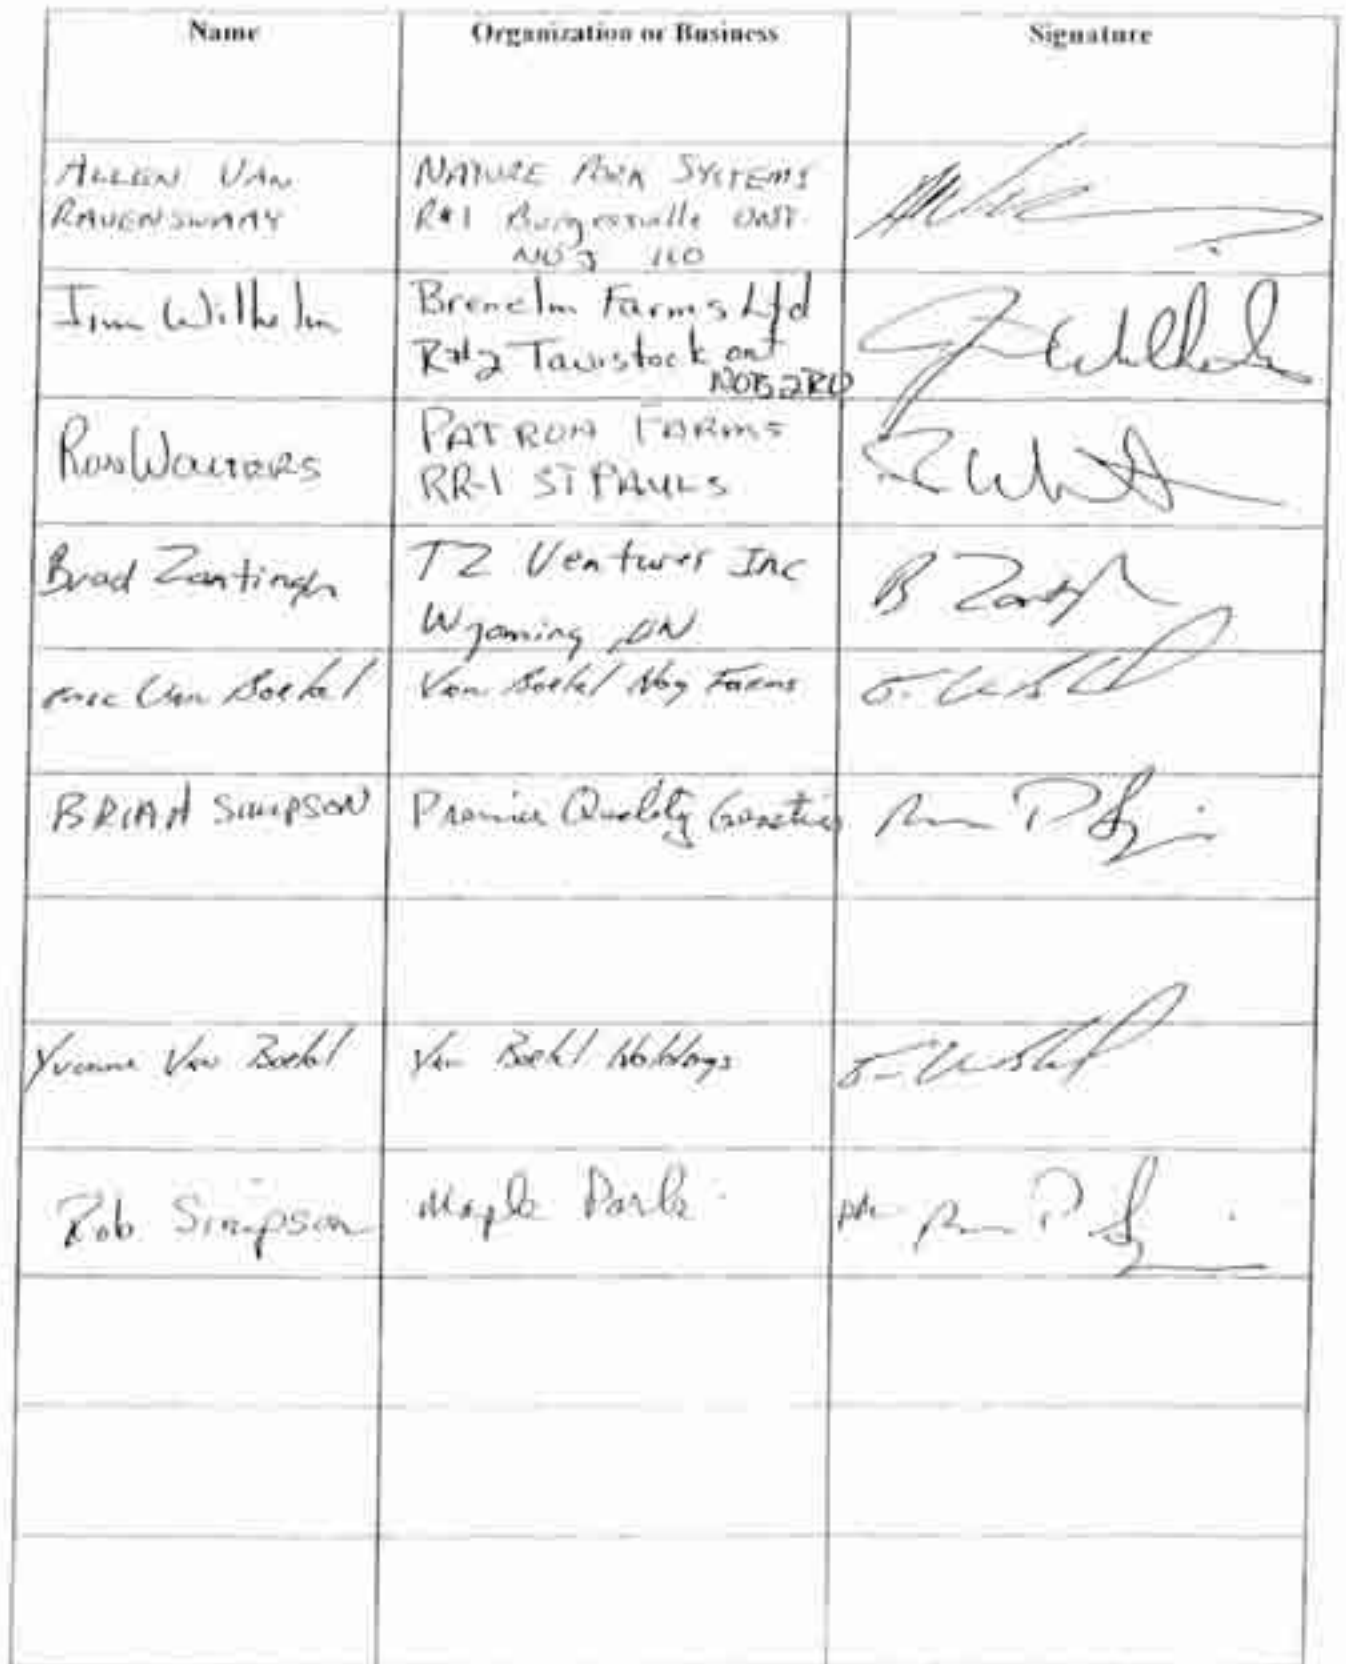 Name Organization or Business Signature
ALLEN VAN
RAVENSWAAY
NATURE PORK SYSTEMS
R#1 Burgessville ONT.
N0J 1C0
Jim Wilhelm
Brenelm Farms Ltd
R#2 Tavistock ont
N0B 2R0
J Wilhelm
Ron Walters
PATRON FARMS
RR-1 ST PAULS
Brad Zantingh
TZ Ventures Inc
Wyoming ON
B Zantingh
Eric Van Boekel
Van Boekel Hog Farms
BRIAN SIMPSON
Premier Quality Genetics
Yvonne Van Boekel
Van Boekel Holdings
Rob Simpson
Maple Park